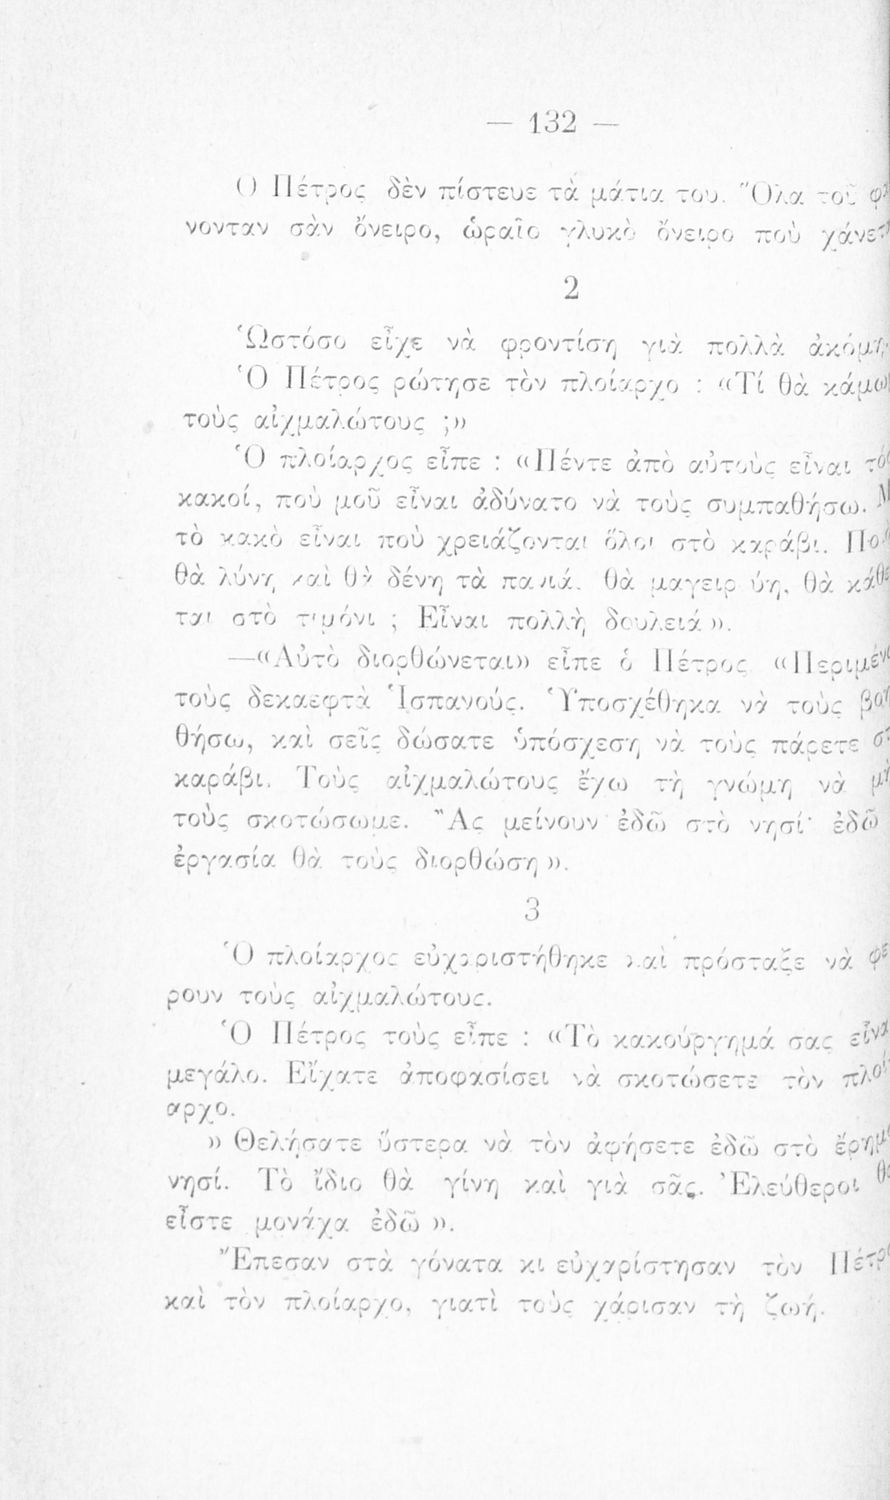 — 132 —
Ὁ Πέτρος δὲν πίστευε τὰ μάτια του. Ὅλα τοῦ
νονταν σὰν ὄνειρο, ὡραῖο γλυκὸ ὄνειρο ποὺ
2
Ὡστόσο εἶχε νὰ φροντίση γιὰ πολλὰ
Ὁ Πέτρος ρώτησε τὸν πλοίαρχο : «Τί θὰ
τοὺς αἰχμαλώτους ;»
Ὁ πλοίαρχος εἶπε : «Πέντε ἀπὸ αὐτοὺς εἶναι
κακοί, ποὺ μοῦ εἶναι ἀδύνατο νὰ τοὺς συμπαθήσω.
τὸ κακὸ εἶναι ποὺ χρειάζονται ὅλοι στὸ καράβι.
θὰ λύνη καὶ θὰ δένη τὰ πανιά. θὰ μαγειρεύη, θὰ
ται στὸ τιμόνι ; Εἶναι πολλὴ δουλειά».
—«Αὐτὸ διορθώνεται» εἶπε ὁ Πέτρος
τοὺς δεκαεφτὰ Ἱσπανούς. Ὑποσχέθηκα νὰ τοὺς
θήσω, καὶ σεῖς δώσατε ὑπόσχεση νὰ τοὺς πάρετε
καράβι. Τοὺς αἰχμαλώτους ἔχω τὴ γνώμη νὰ μὴ
τοὺς σκοτώσωμε. Ἂς μείνουν ἐδῶ στὸ νησί· ἐδῶ
ἐργασία θὰ τοὺς διορθώση».
3
Ὁ πλοίαρχος εὐχαριστήθηκε καὶ πρόσταξε νὰ φέ
ρουν τοὺς αἰχμαλώτους.
Ὁ Πέτρος τοὺς εἶπε : «Τὸ κακούργημά σας
μεγάλο. Εἴχατε ἀποφασίσει νὰ σκοτώσετε τὸν πλοί
αρχο.
» Θελήσατε ὕστερα νὰ τὸν ἀφήσετε ἐδῶ στὸ
νησί. Τὸ ἴδιο θὰ γίνη καὶ γιὰ σᾶς. Ἐλεύθεροι
εἶστε μονάχα ἐδῶ».
Ἔπεσαν στὰ γόνατα κι εὐχαρίστησαν τὸν
καὶ τὸν πλοίαρχο, γιατὶ τοὺς χάρισαν τὴ ζωή.